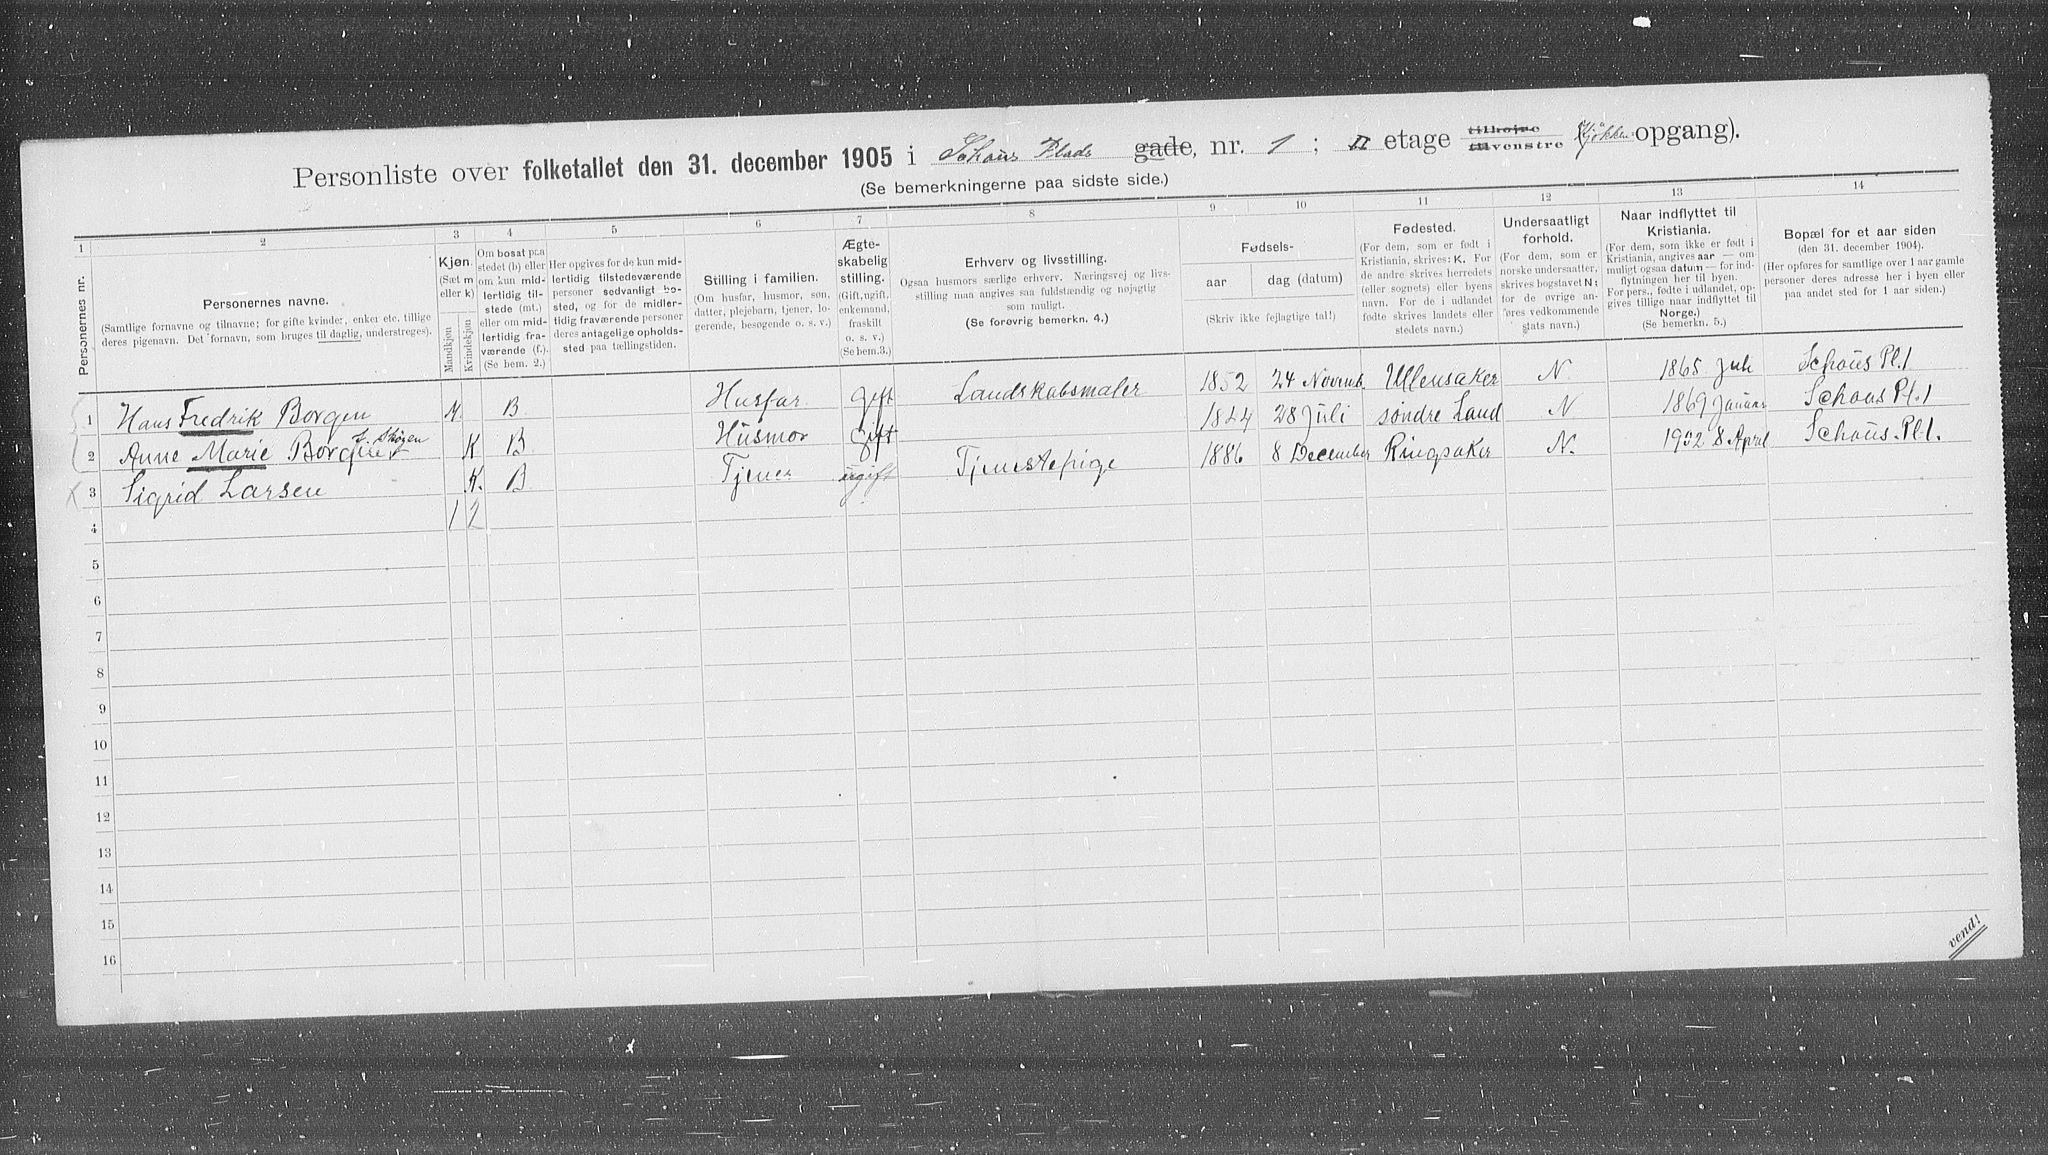 Personliste over folketallet den 31. december 1905 i Schous Plads gade, nr. 1 ; II etage tilhøjre tilvenstre Kjøkken opgang).
(Se bemerkningerne paa sidste side.)
1 2 3 4 5 6 7 8 9 10 11 12 13 14
Personernes nr.
Personernes navne.
(Samtlige fornavne og tilnavne; for gifte kvinder, enker etc. tillige
deres pigenavn. Det fornavn, som bruges til daglig, understreges).
Kjøn.
(Sæt m
eller k)
Mandkjøn
Kvindekjøn
Om bosat paa
stedet (b) eller
om kun mid-
lertidig til-
stede (mt.)
eller om mid-
lertidig fra-
værende (f.).
(Se bem. 2.)
Her opgives for de kun mid-
lertidig tilstedeværende
personer sedvanligt bo-
sted, og for de midler-
tidig fraværende personer
deres antagelige opholds-
sted paa tællingstiden.
Stilling i familien.
(Om husfar, husmor, søn,
datter, plejebarn, tjener, lo-
gerende, besøgende o. s. v.)
Ægte-
skabelig
stilling.
(Gift, ugift,
enkemand,
fraskilt
o. s. v.)
(Se bem.3.)
Erhverv og livsstilling.
Ogsaa husmors særlige erhverv. Næringsvej og livs-
stilling maa angives saa fuldstændig og nøjagtig
som muligt.
(Se forøvrig bemerkn. 4.)
Fødsels-
aar dag (datum)
(Skriv ikke fejlagtige tal!)
Fødested.
(For dem, som er født i
Kristiania, skrives: K. For
de andre skrives herredets
(eller sognets) eller byens
navn. For de i udlandet
fødte skrives landets eller
stedets navn.)
Undersaatligt
forhold.
(For dem, som er
norske undersaatter,
skrives bogstavet N;
for de øvrige an-
føres vedkommende
stats navn.)
Naar indflyttet til
Kristiania.
(For dem, som ikke er født i
Kristiania, angives aar — om
muligt ogsaa datum — for ind-
flytningen her til byen.
For pers., fødte i udlandet, op-
gives tillige naar indflyttet til
Norge.)
(Se bemerkn. 5.)
Bopæl for et aar siden
(den 31. december 1904).
(Her opføres for samtlige over 1 aar gamle
personer deres adresse her i byen eller
paa andet sted for 1 aar siden.)
1 Hans Fredrik Borgen M. B Husfar Gift Landskabsmaler 1852 24 Novemb Ullensaker N 1865 Juli Schous Pl. 1
2 Anne Marie Borgen f. Skøien K B Husmor Gift 1844 28 Juli søndre Land N 1869 Januar Schous Pl. 1
3 Sigrid Larsen K. B Tjener ugift Tjenestepige 1886 8 December Ringsaker N. 1902 8 April Schous. Pl 1.
4 1 2
5
6
7
8
9
10
11
12
13
14
15
16
vend!